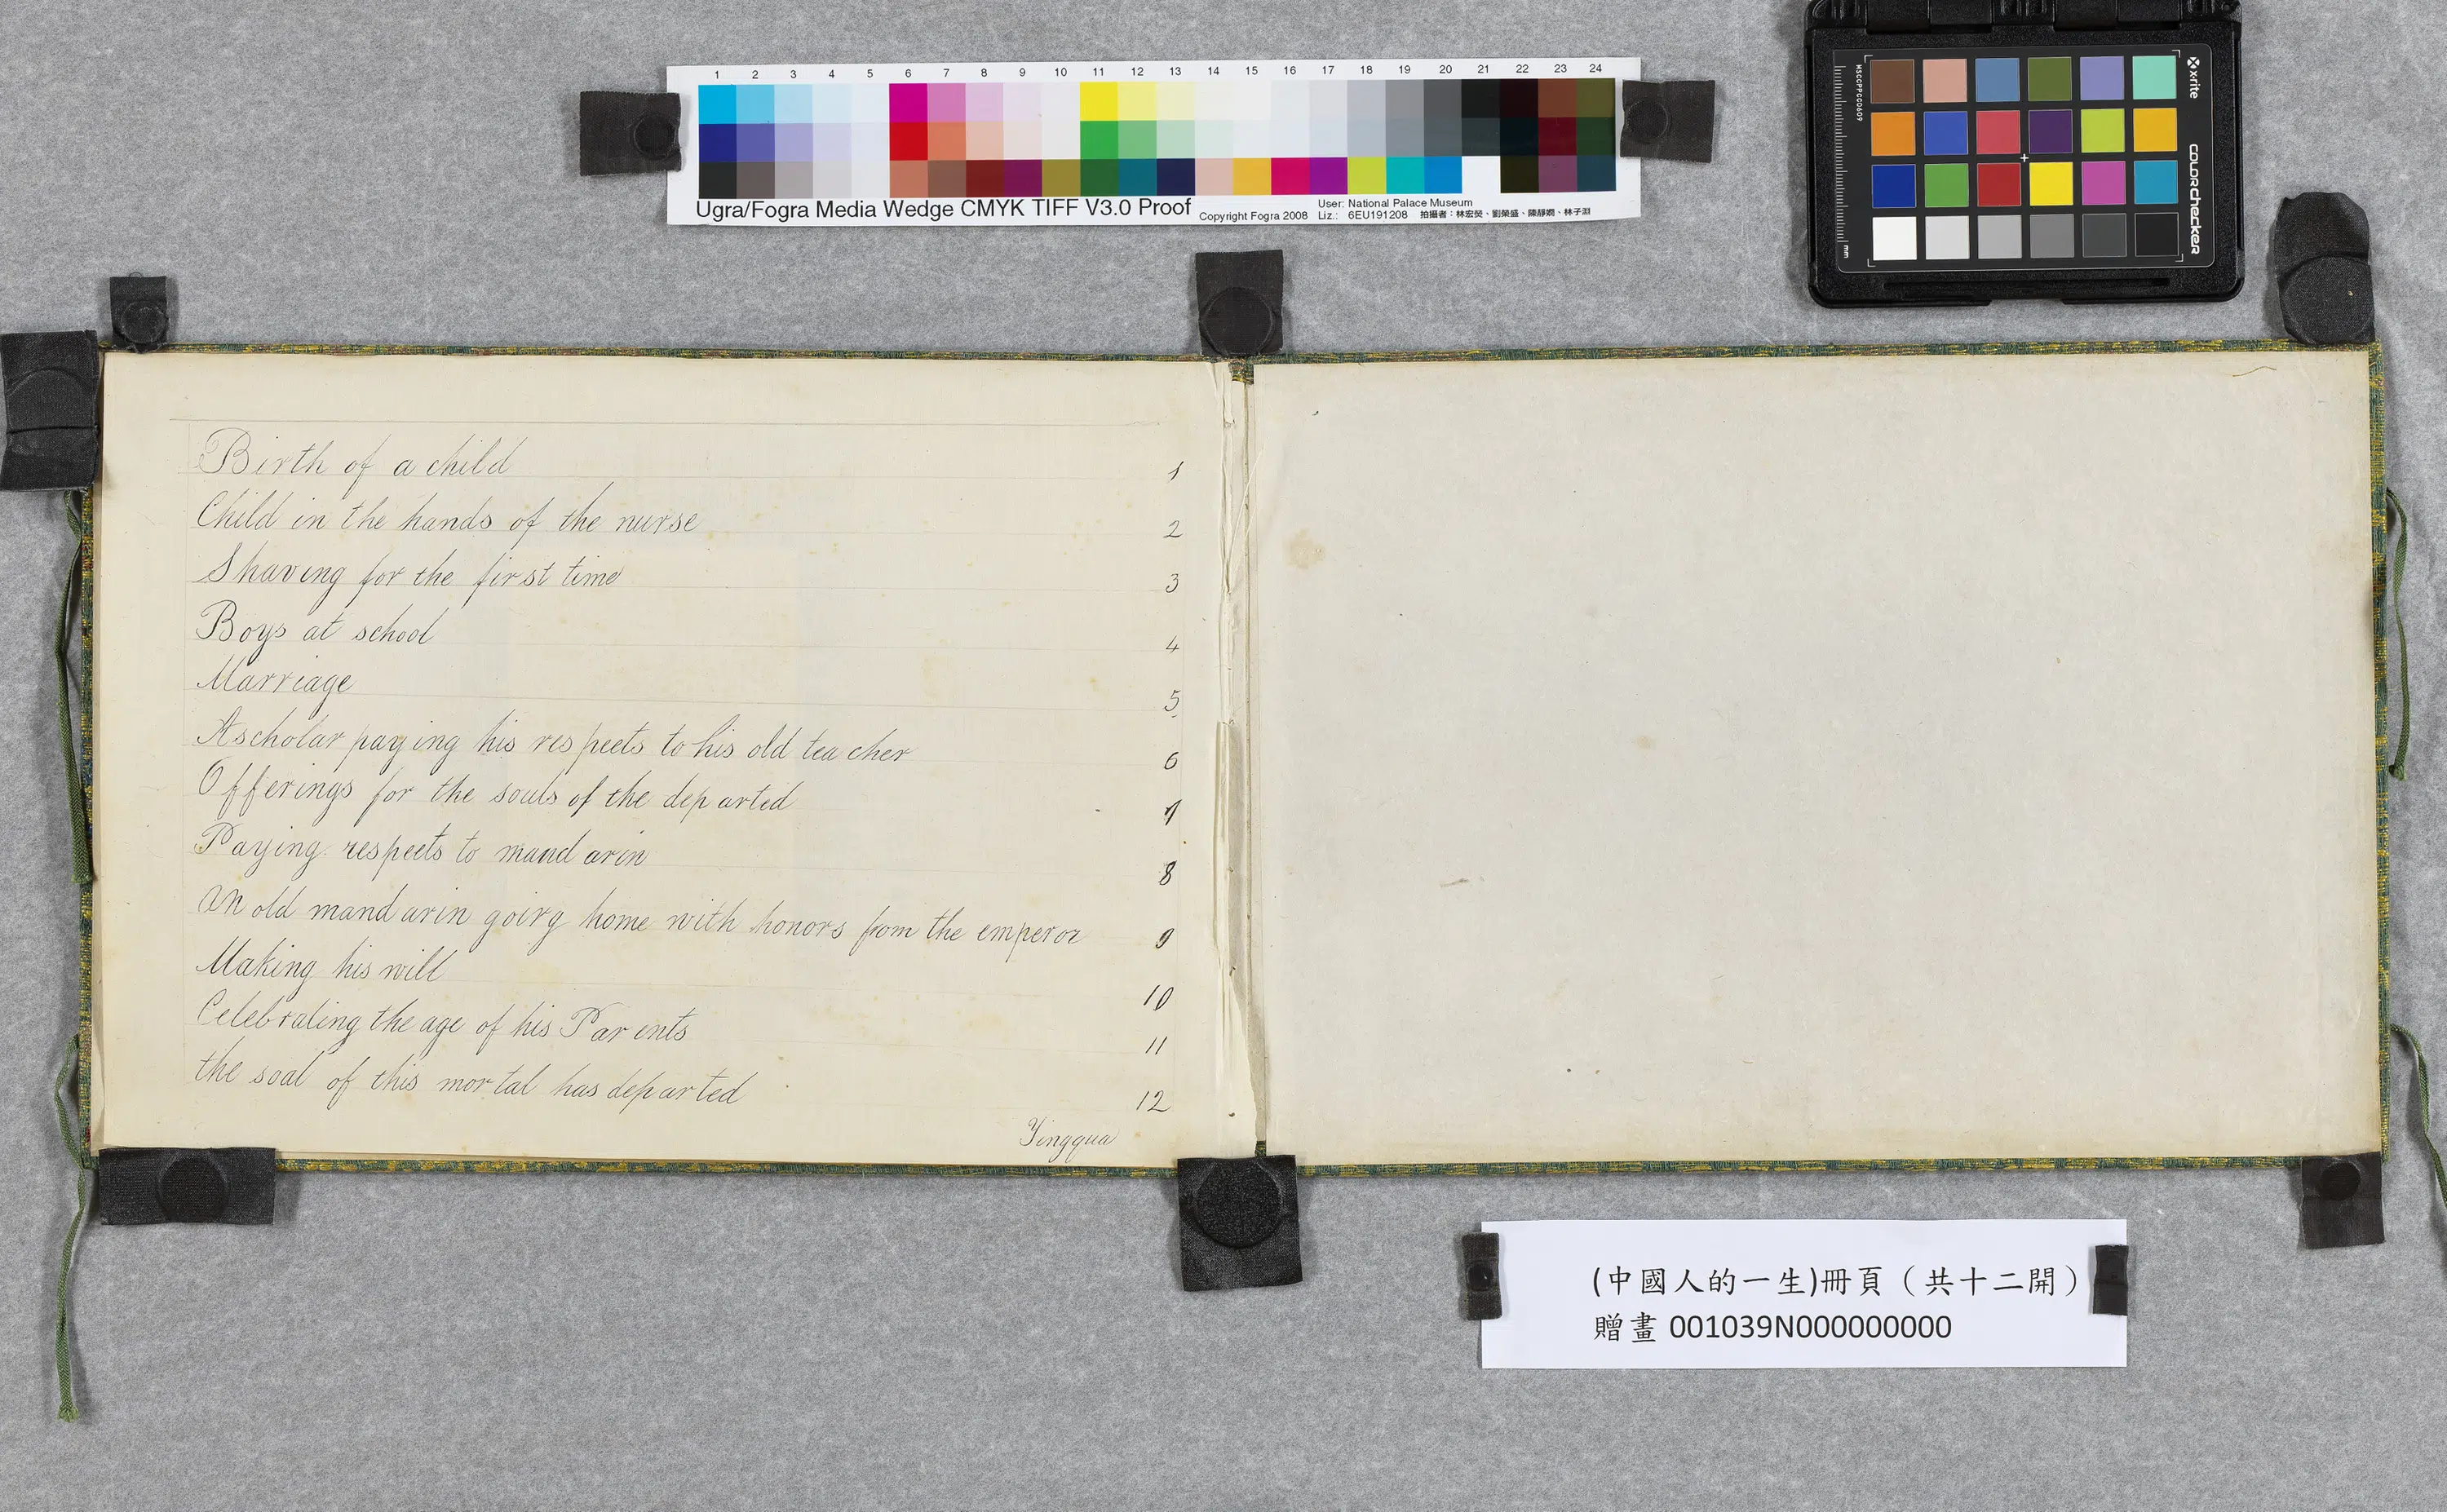 1 2 3 4 5 6 7 8 9 10 11 12 13 14 15 16 17 18 19 20 21 22 23 24
Ugra/Fogra Media Wedge CMYK TIFF V3.0 Proof
Copyright Fogra 2008
User: National Palace Museum
Liz.: 6EU191208 拍攝者：林宏熒、劉榮盛、陳靜嫻、林子淵
x-rite
colorchecker
MSCCPPCC0609
mm
Birth of a child 1
Child in the hands of the nurse 2
Shaving for the first time 3
Boys at school 4
Marriage 5
A scholar paying his respects to his old teacher 6
Offerings for the souls of the departed 7
Paying respects to mandarin 8
An old mandarin going home with honors from the emperor 9
Making his will 10
Celebrating the age of his Parents 11
the soal of this mortal has departed 12
Yingqua
(中國人的一生)冊頁（共十二開）
贈畫 001039N000000000